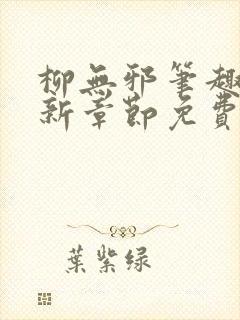 柳無邪筆趣
新章節免費
葉紫绿